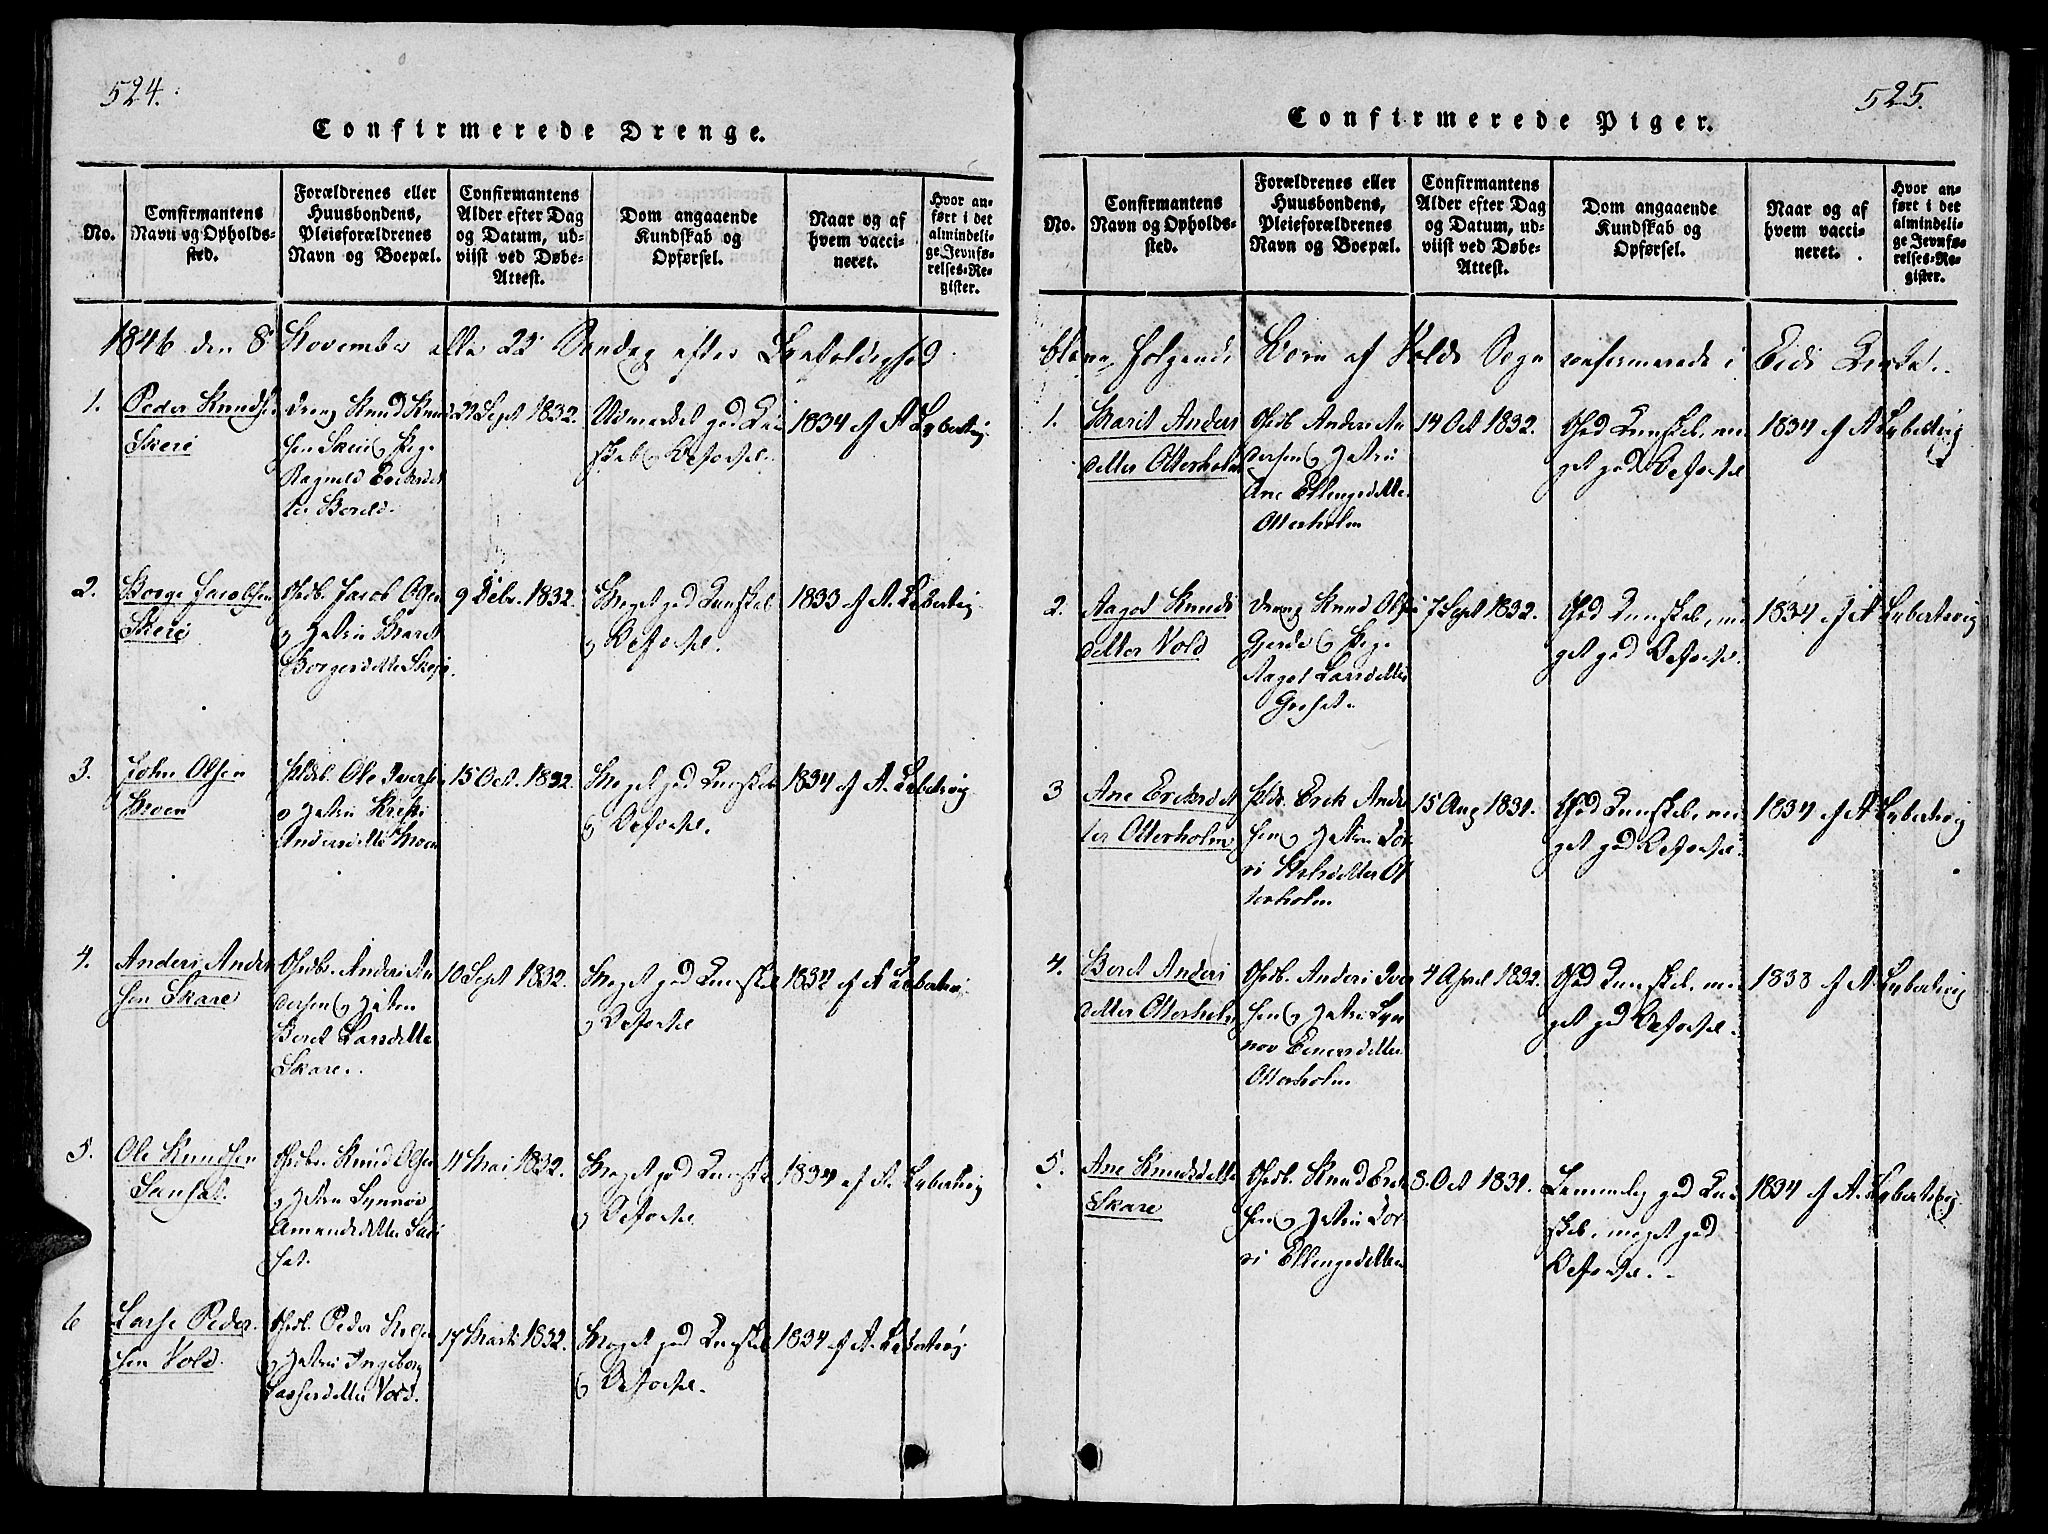 524.
Confirmerede Drenge.
No.
Confirmantens
Navn og Opholds-
sted.
Forældrenes eller
Huusbondens,
Pleieforældrenes
Navn og Boepæl.
Confirmantens
Alder efter Dag
og Datum, ud-
viist ved Døbe-
Attest.
Dom angaaende
Kundskab og
Opførsel.
Naar og af
hvem vacci-
neret.
Hvor an-
ført i det
almindeli-
ge Jevnfø-
relses-Re-
gister.
1846 den 8 November eller 22 Søndag efter Trefoldighed
1.
Peder Knudsen
Skeie
Dreng Knud Knud
sen Skeie og Pige
Ragnild Eriksdat
ter
22 Sept 1832.
Udmærket god Kund
skab og Opførsel.
1834 af A Lybertvig
2.
Børge Jacobsen
Skeie
Gdb. Jacob Olsen
og Hustru Beret
Børgesdatter Skeie
9 Febr. 1832.
Meget god Kundskab
og Opførsel.
1833 af A. Lybertvig
3.
John Olsen
Moen
Pldsb. Ole Iversen
og Hustru Kirsti
Andersdatter Moen
15 Oct. 1832.
Meget god Kundskab
og Opførsel.
1834 af A. Lybertvig
4.
Anders Ander
sen Skare
Gdbr. Anders An
dersen og Hustru
Beret Larsdatter
Skare.
10 Sept 1832.
Meget god Kundskab
og Opførsel
1832 af A Lybertvig
5.
Ole Knudsen
Gdbr. Knud Olsen
og Hustru Synnøv
Amundsdatter
set.
11 Mai 1832.
Meget god Kundskab
og Opførsel
1834 af A. Lybertvig
6
Lasse Peder
sen Vold.
Gdb. Peder
og Hustru Ingeborg
Lassesdatter Vold.
17 Marts 1832.
Meget god Kundskab
og Opførsel.
1834 af A. Lybertvig
525.
Confirmerede Piger.
No.
Confirmantens
Navn og Opholds-
sted.
Forældrenes eller
Huusbondens,
Pleieforældrenes
Navn og Boepæl.
Confirmantens
Alder efter Dag
og Datum, ud-
viist ved Døbe-
Attest.
Dom angaaende
Kundskab og
Opførsel.
Naar og af
hvem vacci-
neret.
Hvor an-
ført i det
almindeli-
ge Jevnfø-
relses-Re-
gister.
bleve følgende Børn af Volds Sogn confirmerede i Eids Kirke.
1.
Marit Anders
datter Otterholm
Gdb. Anders An
dersen og Hustru
Ane Ellingsdatter
Otterholm
14 Oct 1832.
God Kundskab, me
get god Opførsel
1834 af A Lybertvig
2.
Aagot Knuds
datter Vold
Dreng Knud Olsen
Gjerde og Pige
Aagot Larsdatter
7 Sept 1832.
God Kundskab, me
get god Opførsel.
1834 af A Lybertvig
3
Ane Eriksdat
ter Otterholm
Pldsb. Erik Ander
sen og Hustru
Otterholm
15 Aug 1831.
God Kundskab, me
get god Opførsel.
1834 af A Lybertvig
4.
Beret Anders
datter Otterholm
Gdb. Anders Iver
sen og Hustru Syn
nøv Einersdatter
Otterholm
4 April 1832.
God Kundskab, me
get god Opførsel.
1833 af A. Lybertvig
5.
Ane Knudsdatter
Skare
Gdb. Knud Erik
sen og Hustru
Ellingsdatter
8 Oct 1831.
Temmelig god Kund
skab, meget god
Opførsel.
1834 af A. Lybertvig